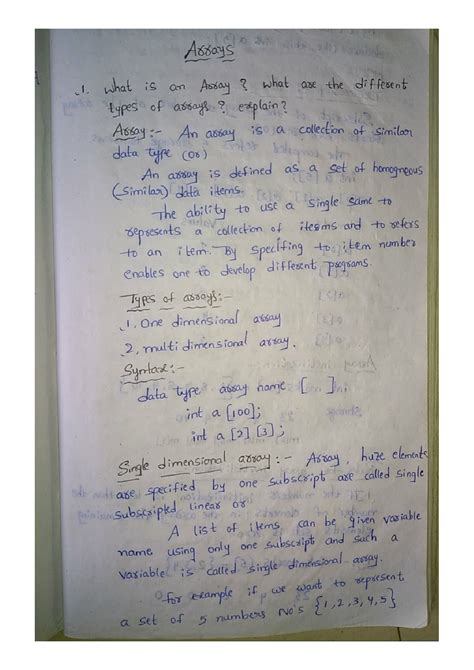 Arrays
1. What is an Array? What are the different
types of arrays? explain?
Array:- An array is a collection of similar
data type (or)
An array is defined as a set of homogneous
(similar) data items.
The ability to use a single same to
represents a collection of items and to refers
to an item. By specifing to item number
enables one to develop different programs.
Types of arrays:-
1. One dimensional array
2, multi dimensional array.
Syntax:-
data type array name [ ]
int a [100];
int a [2] [3];
Single dimensional array:- Array, huze elements
are specified by one subscript are called single
subscripted linear or
A list of items can be given variable
name using only one subscript and such a
variable is called single dimensional array.
for example if we want to represent
a set of 5 numbers No's {1,2,3,4,5}